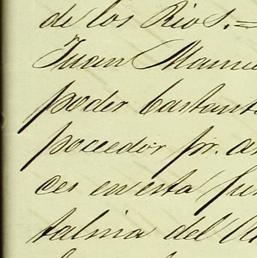 de los Rios.=
Juan Manu
poder bastant
poceedor pr. a
ces en esta fu
talina del